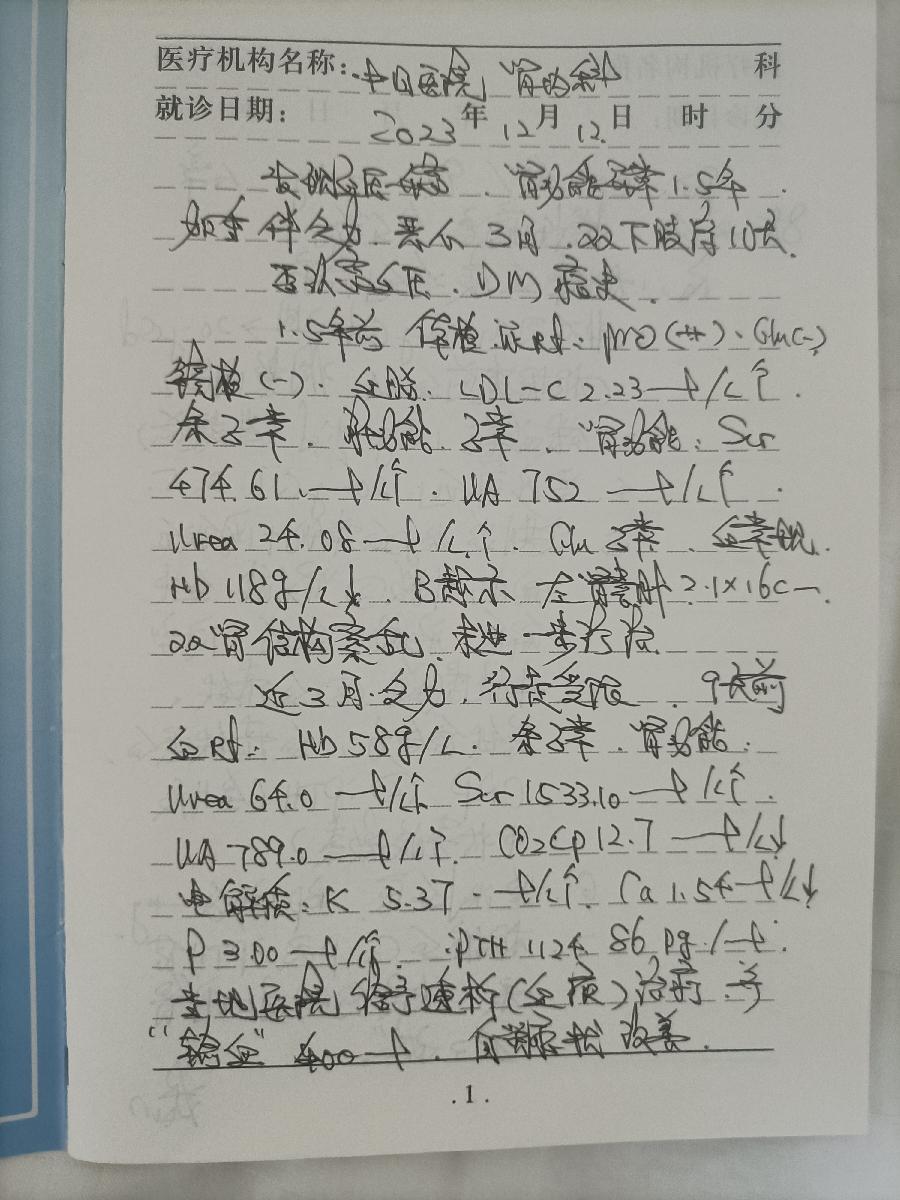 医疗机构名称：中日医院 肾内科 科
就诊日期： 2023年12月12日 时 分
发现血压升高、肾功能异常1.5年
加重伴乏力、恶心3月、双下肢浮10天.
否认高血压、DM病史.
1.5年前 体检 尿Rt: pro(++)、Glu(-)
镜检(-). 血脂: LDL-C 2.23 /L↑.
余正常. 肝功能 正常. 肾功能: Scr
474.61 /L↑. UA 752 /L↑.
Urea 24.08 /L↑. Glu 正常. 血常规:
Hb 118g/L↓. B超示 左肾 2.1×1.6cm.
双肾结构紊乱. 未进一步诊治.
近3月 乏力、行走受限. 9天前
血Rt: Hb 58g/L. 余正常. 肾功能:
Urea 64.0 /L↑ Scr 1533.10 /L↑.
UA 789.0 /L↑. CO2Cp 12.7 /L↓
电解质: K 5.37 /L↑. Ca 1.54 /L↓
P 3.00 /L↑. iPTH 1124.86 pg/ml.
当地医院 给予透析(血液)治疗.予
“输血” 400ml. 自觉症状改善.
.1.